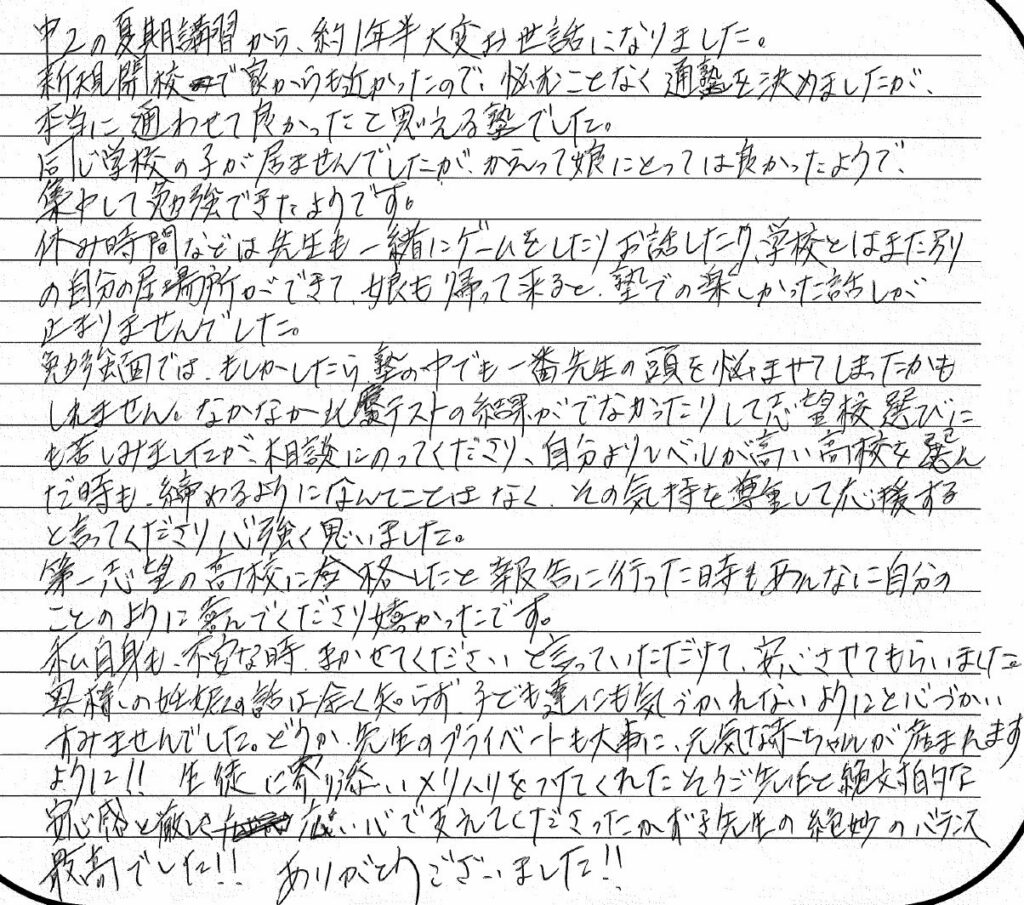 中2の夏期講習から、約1年半大変お世話になりました。
新規開校で家からも近かったので、悩むことなく通塾を決めましたが、
本当に通わせて良かったと思える塾でした。
同じ学校の子が居ませんでしたが、かえって娘にとっては良かったようで、
集中して勉強できたようです。
休み時間などは先生も一緒にゲームをしたりお話したり、学校とはまた別り
の自分の居場所ができて、娘も帰って来ると、塾での楽しかった話しが
止まりませんでした。
勉強面では、もしかしたら塾の中でも一番先生の頭を悩ませてしまったかも
しれません。なかなか北辰テストの結果がでなかったりして志望校選びに
も苦しみましたが、相談にのってくださり、自分よりレベルが高い高校を選ん
だ時も、締めるようになんてことはなく、その気持を尊重して応援する
と言ってくださり心強く思いました。
第一志望の高校に合格したと報告に行った時もあんなに自分の
ことのように喜んでくださり嬉かったです。
私自身も、不安な時、まかせてくださいと言っていただけて、安心させてもらいました。
の妊娠の話は全く知らず、子ども達にも気づかれないようにと心づかい
すみませんでした。どうか、先生のプライベートも大事に、元気な赤ちゃんが産まれます
ように!! 生徒に寄り添いメリハリをつけてくれたそうご先生と絶対的な
安心感と徹して広い心で支えてくださったかず子先生の絶妙のバランス
最高でした!! ありがとうございました!!